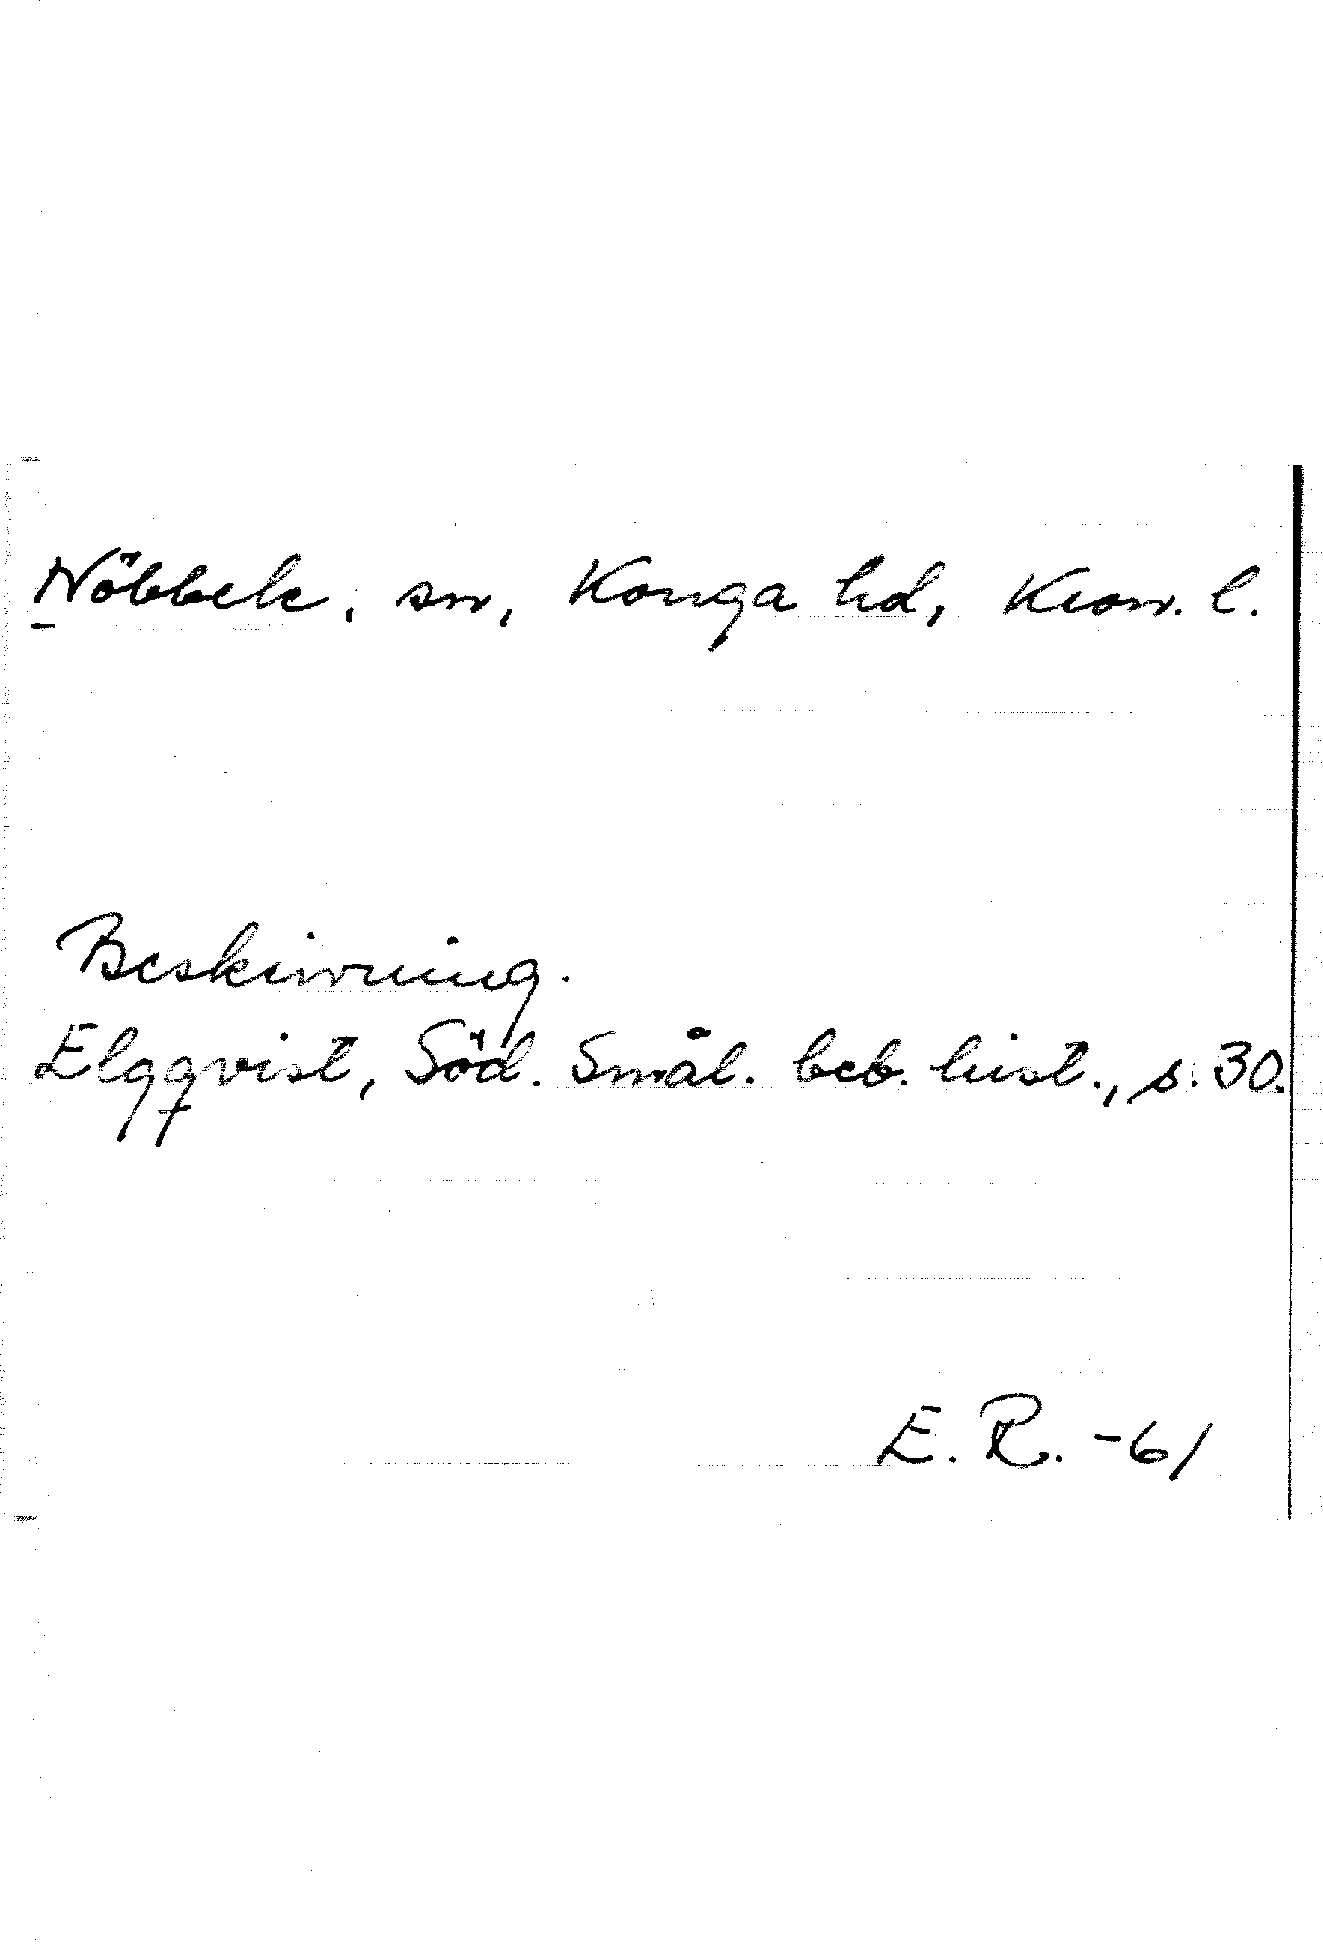 Nöbbele, sn, Konga hd, Kron. l.
Beskrivning.
Elgqvist, Söd. Smål. beb. hist., s. 30.
E. R. -61